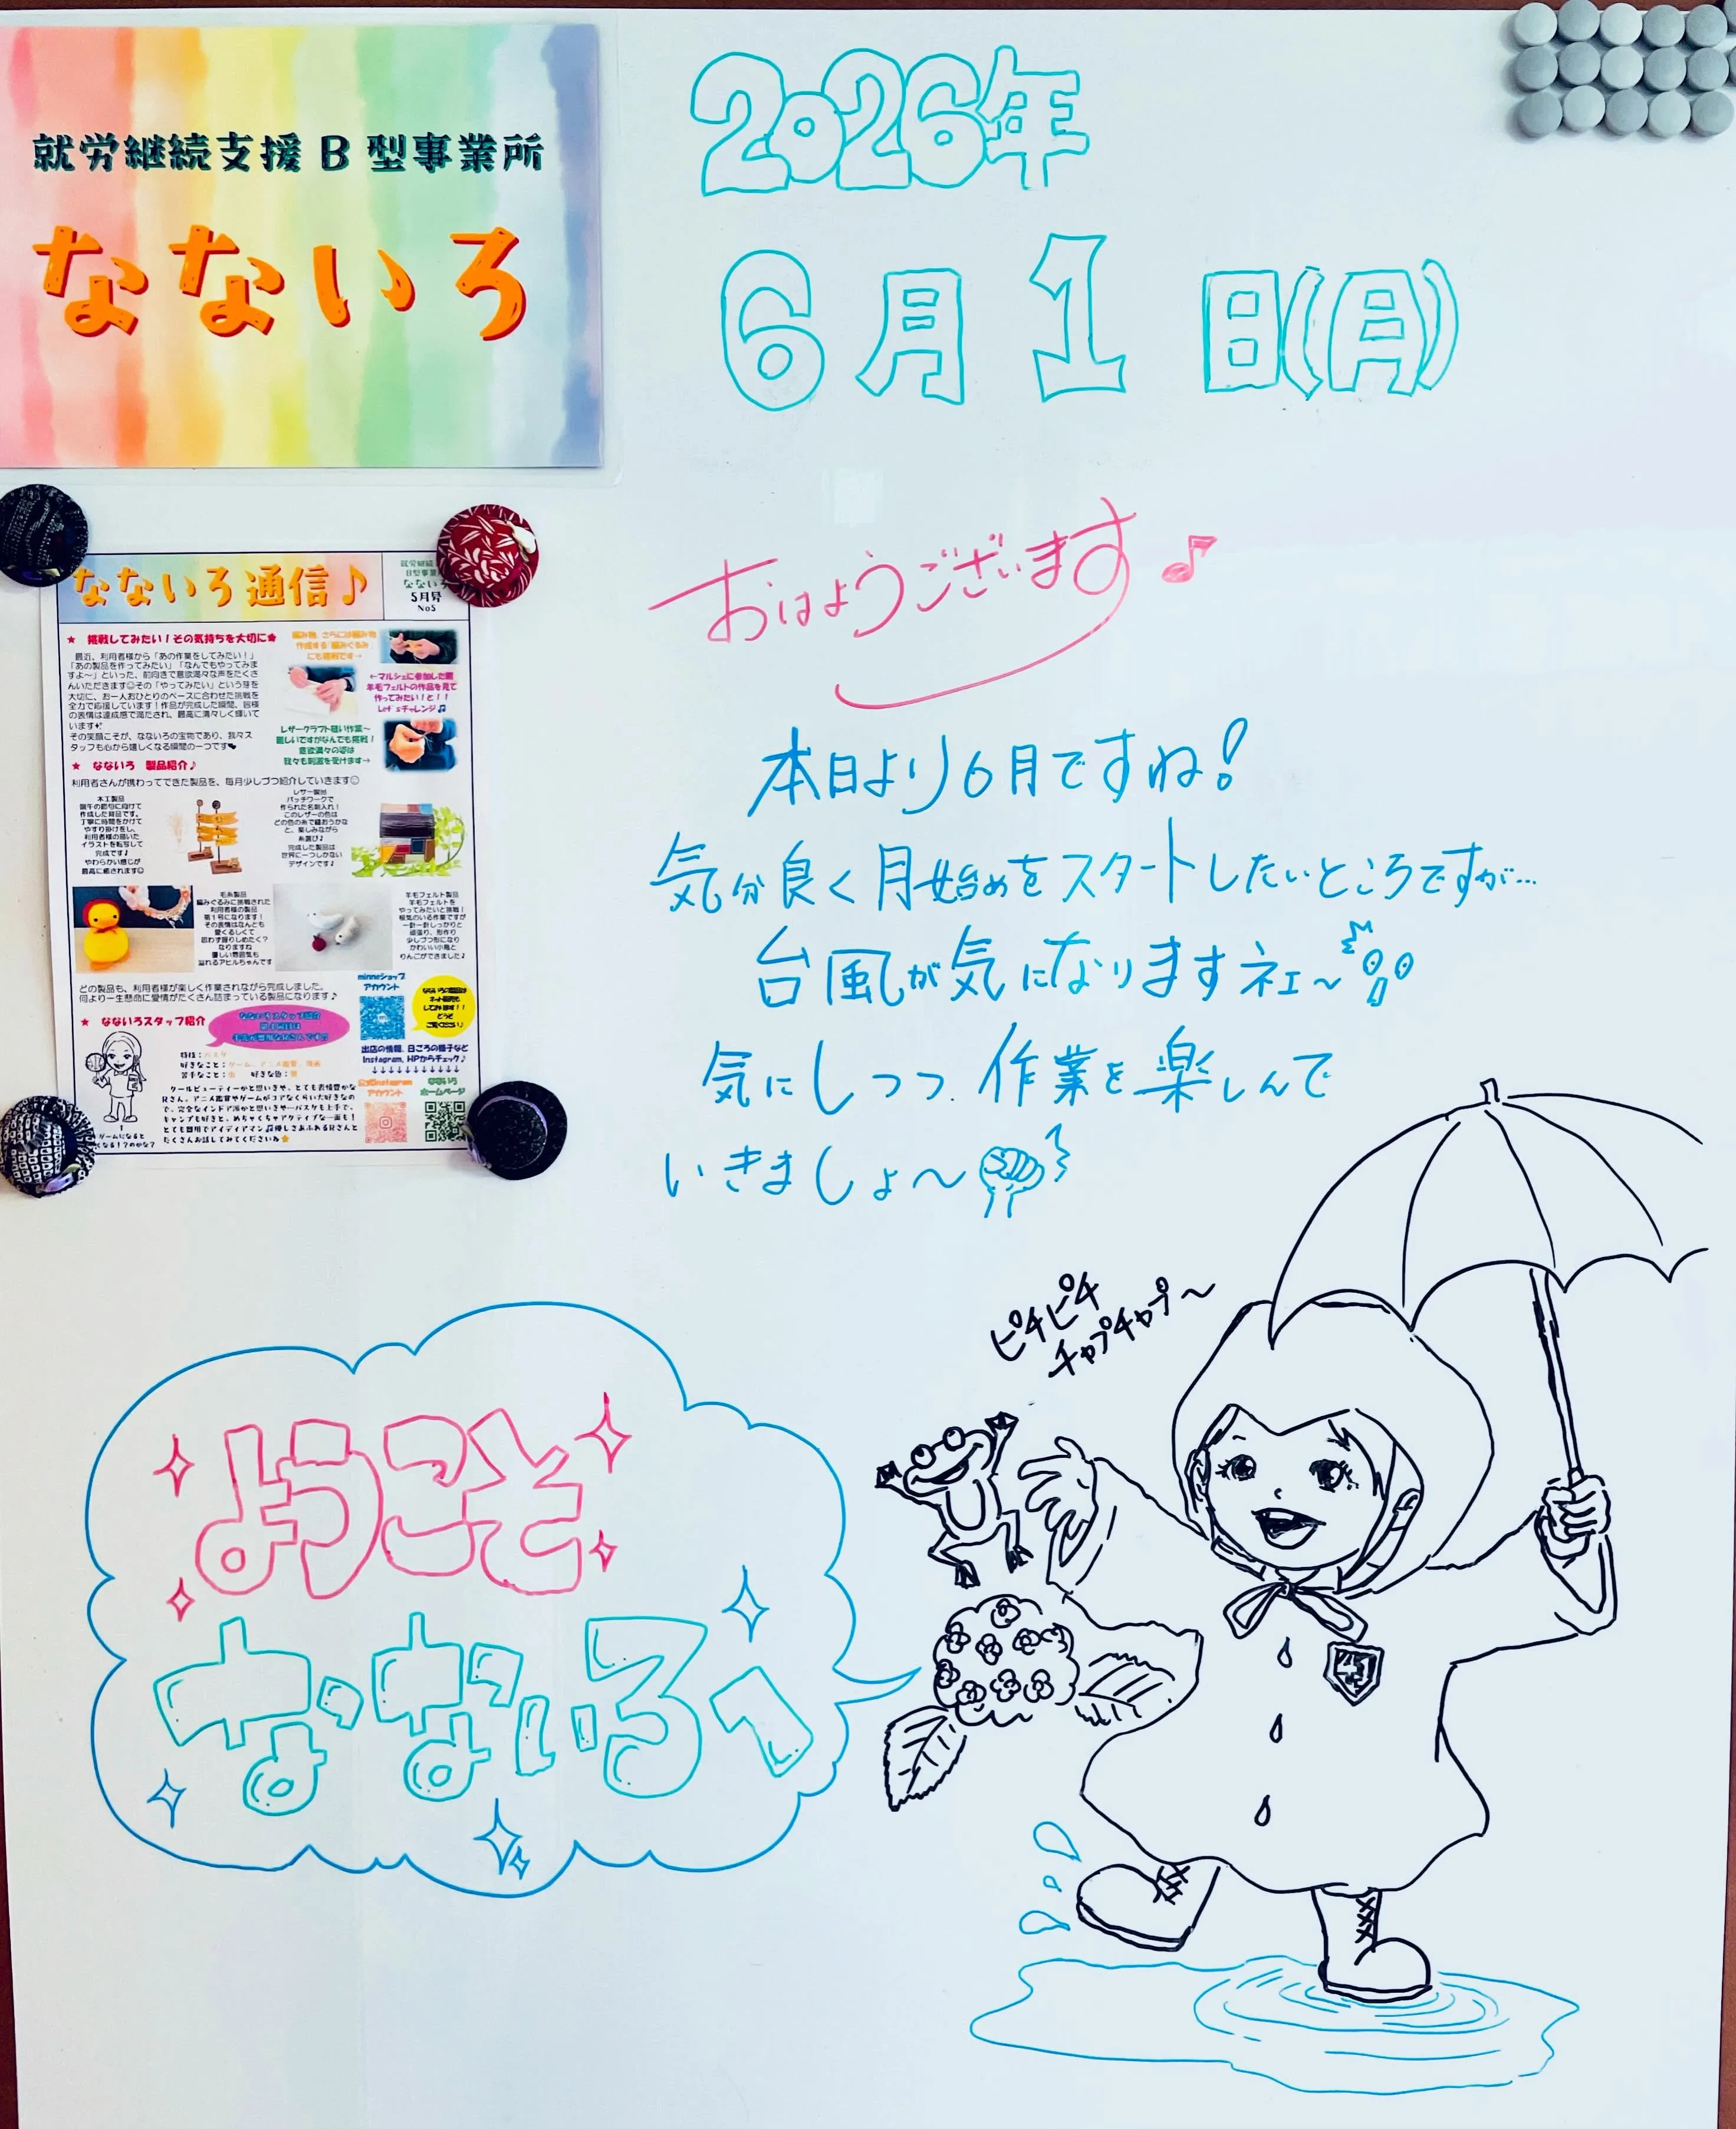 就労継続支援B型事業所
なないろ
2026年
6月1日(月)
おはようございます♪
本日より6月ですね!
気分良く月始めをスタートしたいところですが…
台風が気になりますネェ〜
気にしつつ、作業を楽しんで
いきましょ〜
なないろ通信♪
5月号
No5
★ 挑戦してみたい!その気持ちを大切に★
最近、利用者様から「あの作業をしてみたい!」
「あの製品を作ってみたい」「なんでもやってみま
すよ〜」といった、前向きで意欲満々な声をたくさ
んいただきます☺その「やってみたい」という芽を
大切に、お一人おひとりのペースに合わせた挑戦を
全力で応援しています!作品が完成した瞬間、皆様
の表情は達成感で満たされ、最高に清々しく輝いて
います
その笑顔こそが、なないろの宝物であり、我々ス
タッフも心から嬉しくなる瞬間の一つです
にも挑戦です→
←マルシェに参加した際
羊毛フェルトの作品を見て
作ってみたい!と!!
Let'sチャレンジ♫
レザークラフト縫い作業〜
難しいですがなんでも挑戦!
意欲満々の姿は
我々も刺激を受けます→
★ なないろ 製品紹介♪
利用者さんが携わってできた製品を、毎月少しづつ紹介していきます☺
木工製品
端午の節句に向けて
作成した背品です。
丁寧に時間をかけて
やすり掛けをし、
利用者様の描いた
イラストを転写して
完成です♪
やわらかい感じが
最高に癒されます☺
レザー製品
パッチワークで
作られた名刺入れ!
このレザーの色は
どの色の糸で縫おうかな
と、楽しみながら
糸選び♪
完成した製品は
世界に一つしかない
デザインです♪
毛糸製品
編みぐるみに挑戦された
利用者様の製品
第1号になります!
その表情はなんとも
愛くるしくて
思わず握りしめたく?
なりますね
優しい雰囲気も
溢れるアヒルちゃんです
羊毛フェルト製品
羊毛フェルトを
やってみたいと挑戦!
根気のいる作業ですが
一針一針しっかりと
頑張り、形作り
少しづつ形になり
かわいい小鳥と
りんごができました♪
どの製品も、利用者様が楽しく作業されながら完成しました。
何より一生懸命に愛情がたくさん詰まっている製品になります♪
minneショップ
アカウント
★ なないろスタッフ紹介
出店の情報、日ごろの様子など
Instagram、HPからチェック♪
↓↓↓↓↓↓↓↓↓
公式Instagram
アカウント
なないろ
ホームページ
特技:バスケ
好きなこと:ゲーム、アニメ鑑賞、漫画
クールビューティーかと思いきや、とても表情豊かな
Rさん。アニメ鑑賞やゲームがコアなくらい大好きなの
で、完全なインドア派かと思いきや…バスケも上手で、
キャンプも好きと、めちゃくちゃアクティブな一面も!
とても器用でアイディアマン♫優しさあふれるRさんと
たくさんお話してみてくださいね
ピチピチ
チャプチャプ〜
ようこそ
なないろへ